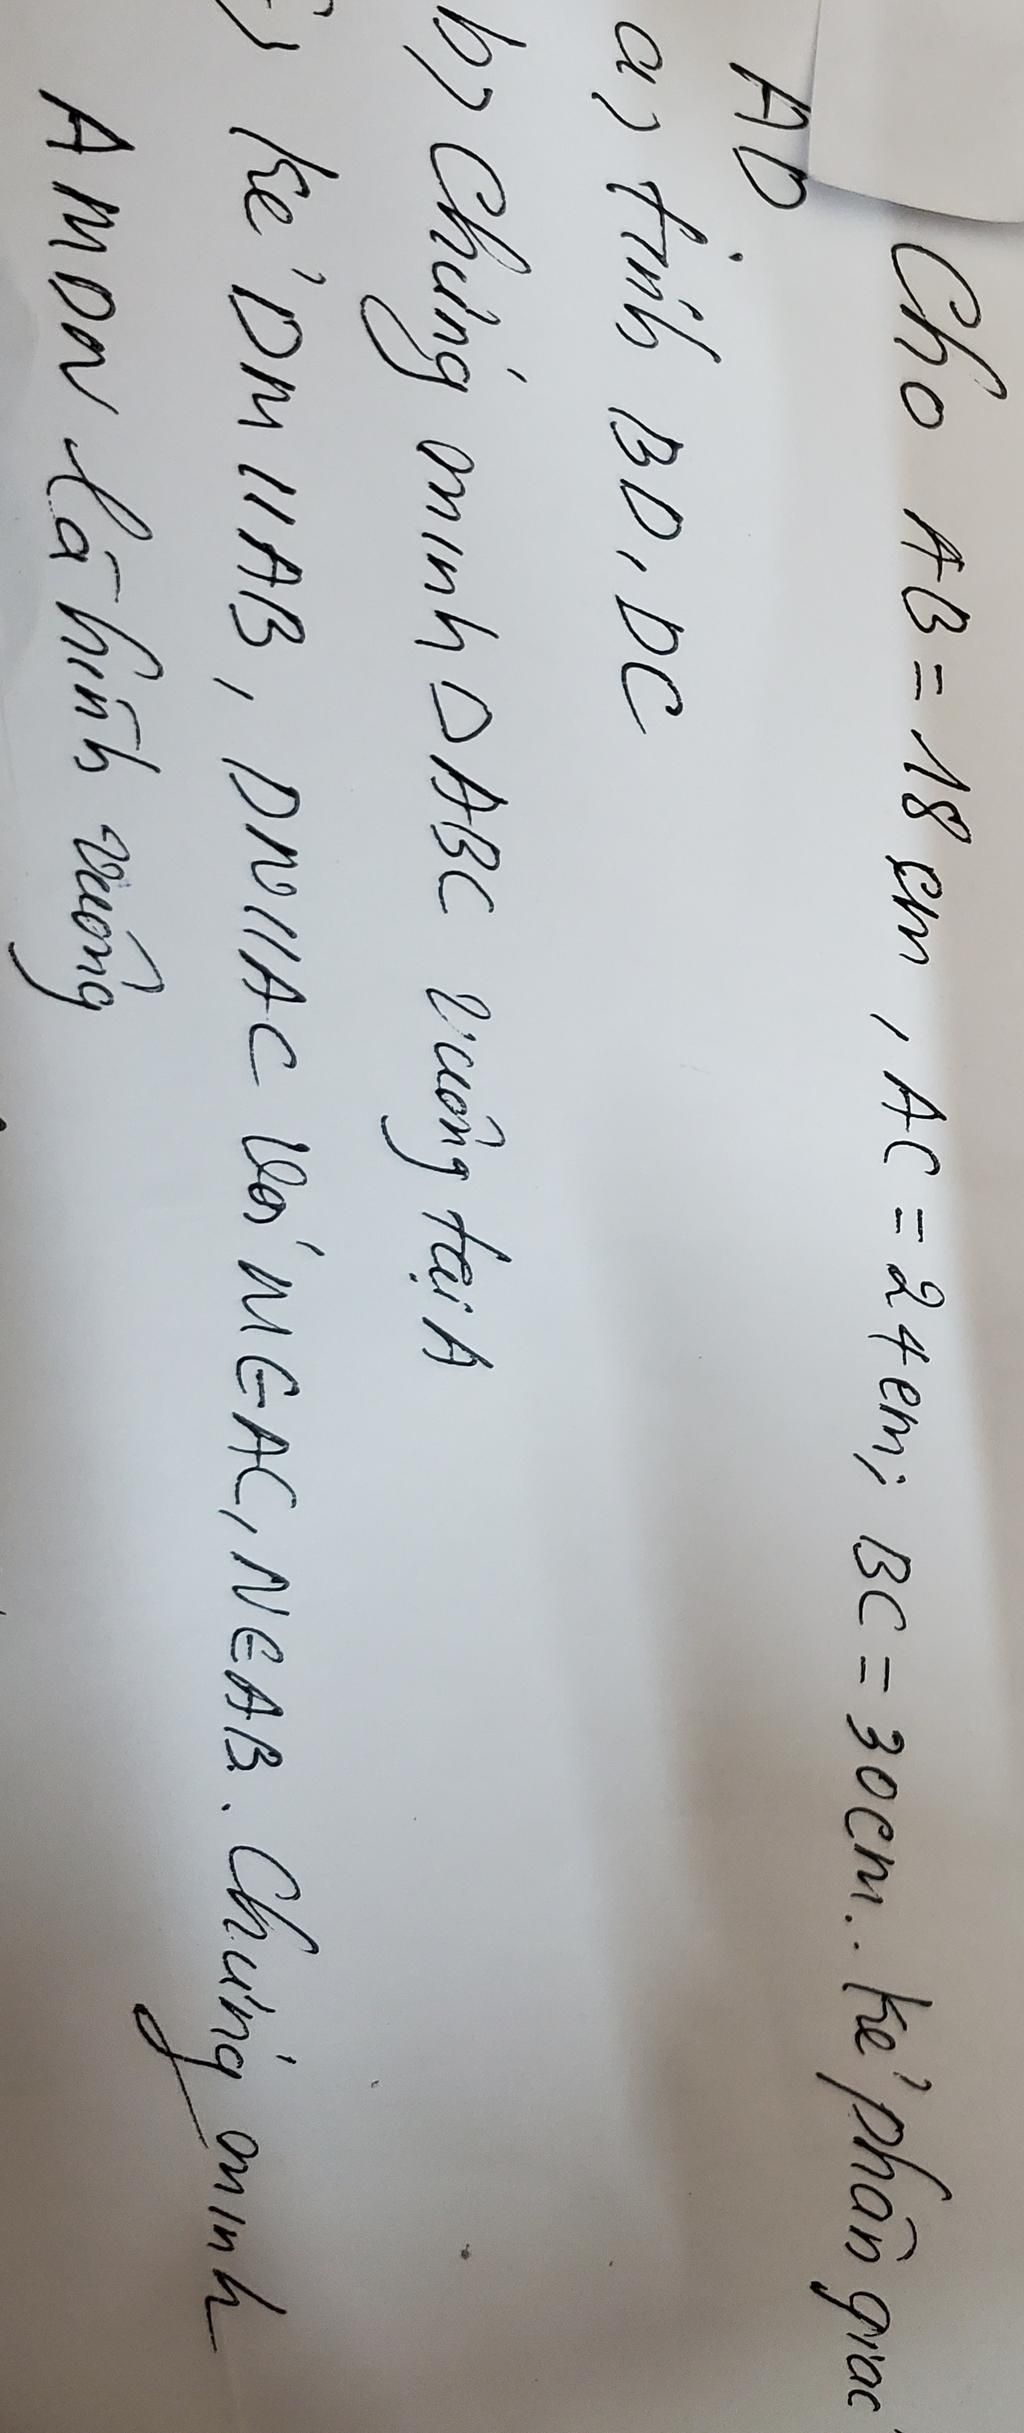 Cho AB = 18cm, AC = 24cm; BC = 30cm.. kẻ phân giác
AD
a) tính BD, DC
b) Chứng minh Δ ABC vuông tại A
) kẻ DM // AB, DN // AC với M ∈ AC, N ∈ AB. Chứng minh
AMDN là hình vuông